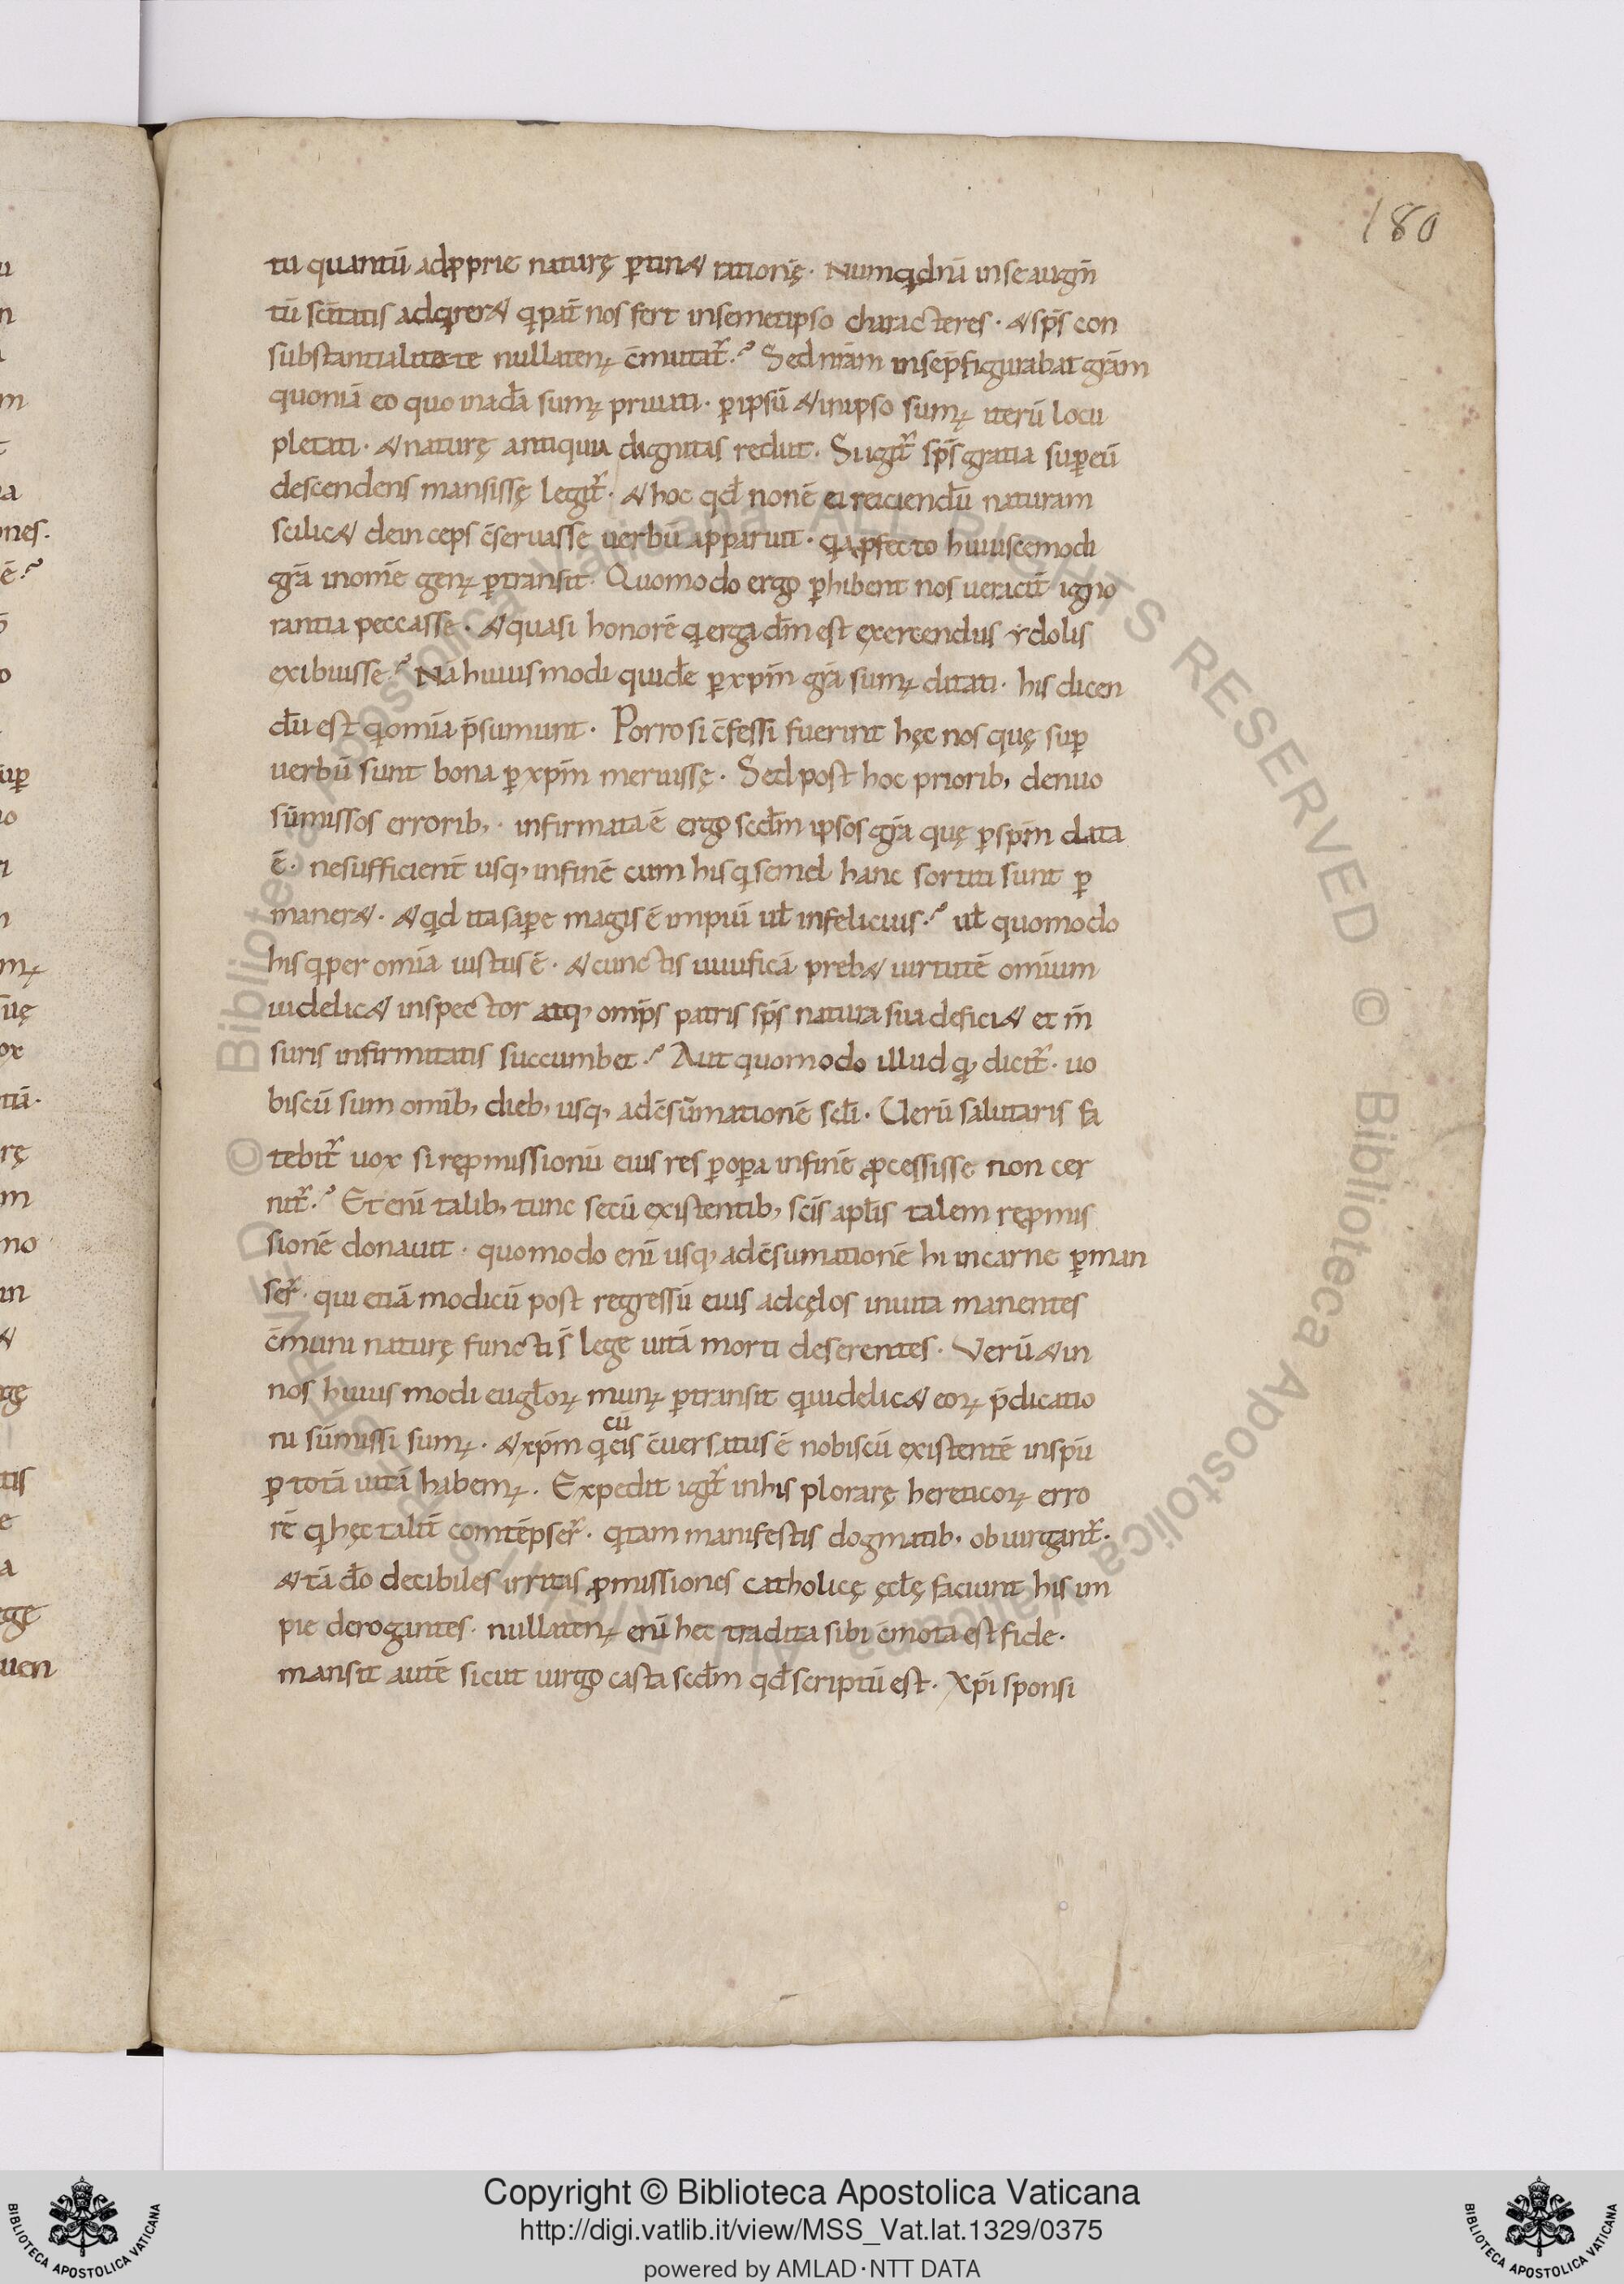 180
tu quantū ad ꝓprie naturę ꝑtin& rationę · Numqd nū in se augm̄
tū sc̄itatis adqrer& q pat̄ nos fert in semetipso characteres · & sp̄s con
substantialitate nullaten; c̄mutat᷑ ·? Sed nr̄am in se p̄figurabat gr̄am
quoniā eo quo in ada sum; priuati · ꝑ ipsū & in ipso sum; iterū locu
pletati · & naturę antiqua dignitas rediit · Si igit᷑ sp̄s gratia suꝑ eū
descendens mansissę legit᷑ · & hoc qd̄ non ē ei reiciendū naturam
scilic& deinceps c̄seruasse uerbū apparuit · q a ꝓfecto huiuscemodi
gr̄a in om̄e gen; ꝑtransit · Quomodo ergo ꝑhibent nos ueracit̄ igno
rantia peccasse · & quasi honorē q erga dm̄ est exercendus ydolis
exibuisse ·? Nā huiusmodi quidē ꝑ xp̄m gr̄a sum; ditati · his dicen
dū est q om̄ia p̄sumunt · Porro si c̄fessi fuerint hęc nos quę suꝑ
uerbū sunt bona ꝑ xp̄m meruissę · Sed post hoc priorib; denuo
sūmissos errorib; · infirmata ē ergo scd̄m ipsos gr̄a quę ꝑ sp̄m data
ē · ne sufficient usq; in finē cum his q semel hanc sortiti sunt ꝑ
maner& · & qd ita saꝑe magis ē impiū ul̄ infelicius ·? ul̄ quomodo
his q per om̄ia iustus ē · & cunctis uiuificā preb& uirtutē om̄ium
uidelic& inspector atq; omp̄s patris sp̄s natura sua defici& et m̄
suris infirmitatis succumbet ·? Aut quomodo illud q; dicit᷑ · uo
biscū sum omīb; dieb; usq; ad c̄sūmationē scl̄i · Uerū salutaris fa
tebit᷑ uox si reꝓmissionū eius res ꝑ oꝑa in finē ꝓcessisse non cer
nit᷑ ·? Et enī talib; tunc secū existentib; sc̄is apl̄is talem reꝓmis
sionē donauit · quomodo enī usq; ad c̄sumationē hi in carne ꝑman
ser᷑ · qui etiā modicū post regressū eius ad cęlos in uita manentes
c̄muni naturę functi s̄ lege uitā morti deserentes · Verū & in
nos huiusmodi eugl̄or; mun; ꝑtransit q uidelic& eor; p̄dicatio
ni sūmissi sum; · & xp̄m q cū eis c̄uersatus ē nobiscū existentē in sp̄u
ꝑ totā uitā habem; · Expedit igit᷑ in his plorarę hereticor; erro
rē q hęc talit̄ contēpser᷑ · q tam manifestis dogmatib; obuirgant᷑ ·
& tā dō decibiles irritas ꝓmissiones catholicę ęcl̄ę faciunt his im
pie derogantes · nullaten; enī hec tradita sibi c̄mota est fide ·
mansit autē sicut uirgo casta scd̄m qd̄ scriptū est · Xp̄i sponsi
ones ·
ē ·?
Copyright © Biblioteca Apostolica Vaticana
http://digi.vatlib.it/view/MSS_Vat.lat.1329/0375
powered by AMLAD·NTT DATA
BIBLIOTECA APOSTOLICA VATICANA
BIBLIOTECA APOSTOLICA VATICANA